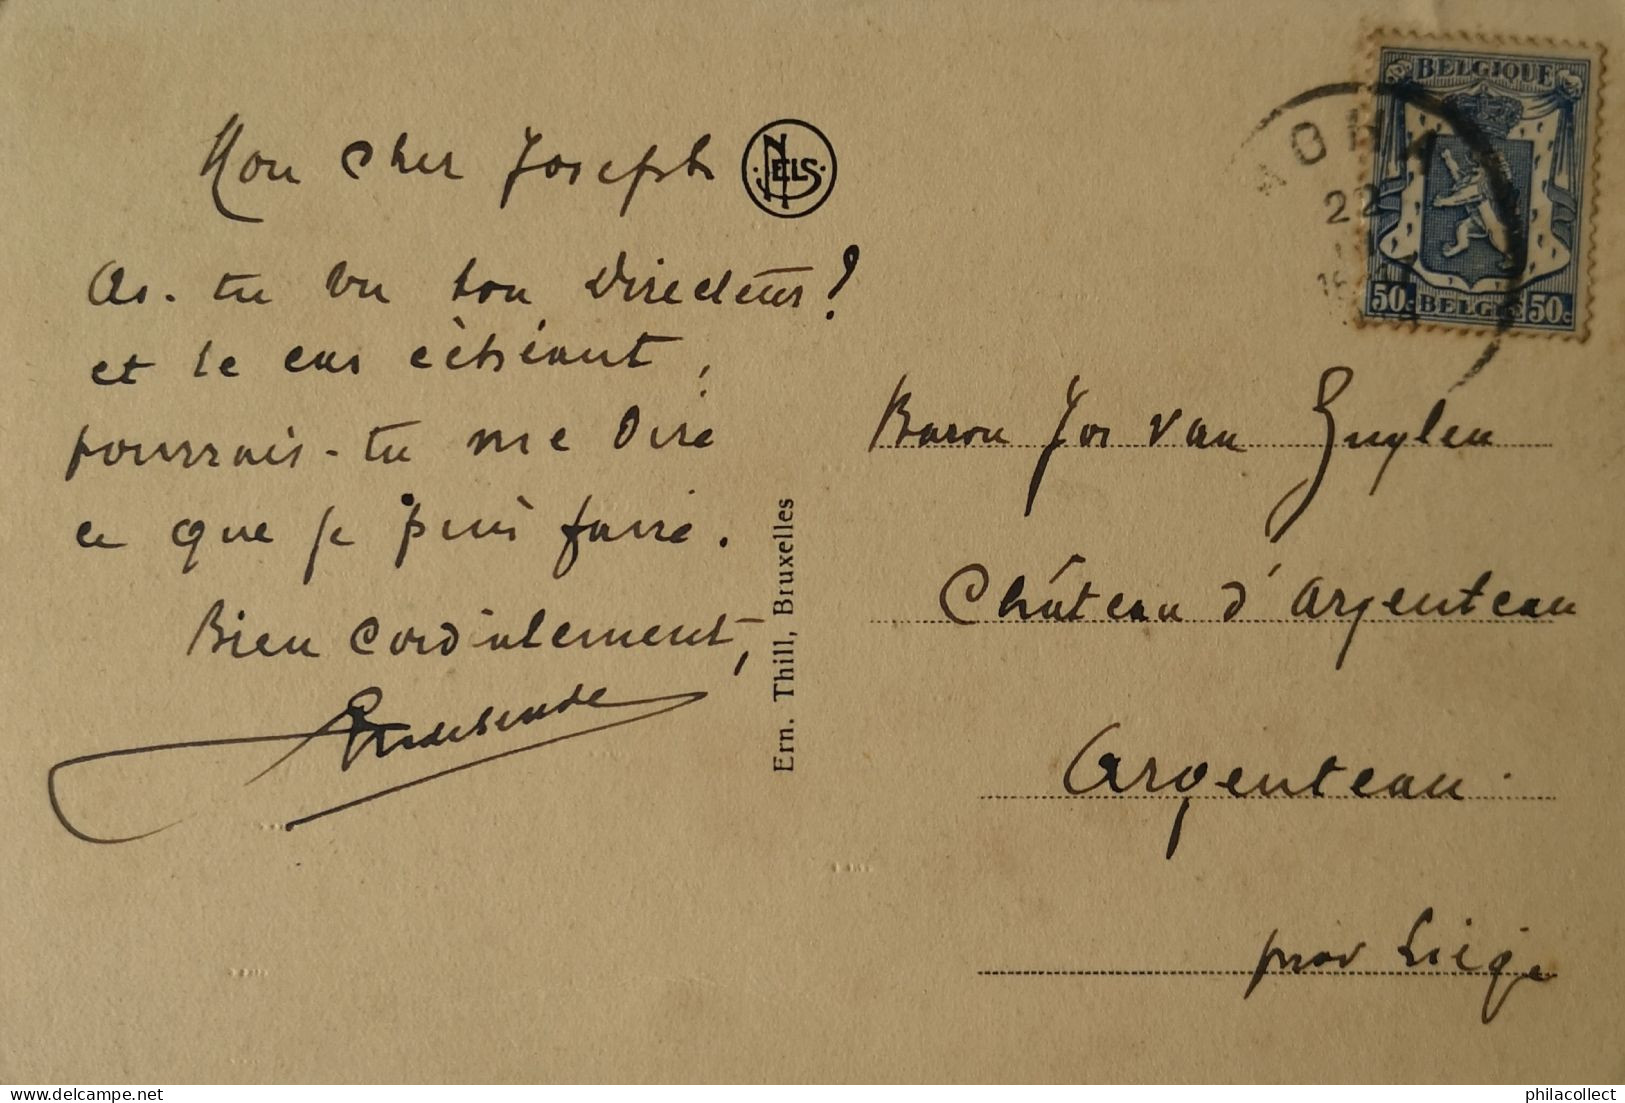 Mon cher Joseph
NELS
As-tu vu ton Directeur?
et le cas échéant,
pourrais-tu me dire
ce que je puis faire.
Bien cordialement,
Ern. Thill, Bruxelles
BELGIQUE
22
50c BELGIE 50c
Baron Jos van Zuylen
Château d'Argenteau
Argenteau.
près Liège
philacollect
av. philacollect